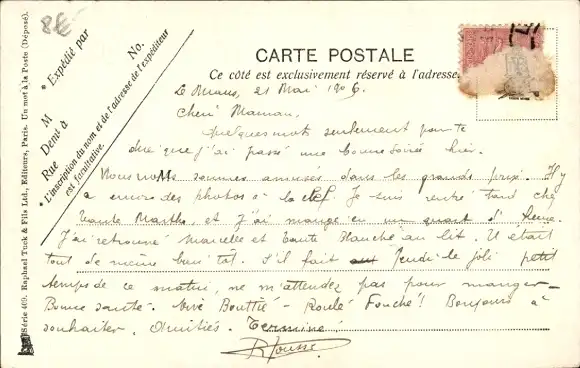 8€
* Expédié par
No.
M
Demt à
Rue
* L'inscription du nom et de l'adresse de l'expéditeur
est facultative.
Série 460. Raphael Tuck & Fils Ltd., Editeurs, Paris. Un mot à la Poste (Déposé).
CARTE POSTALE
Ce côté est exclusivement réservé à l'adresse.
Le Mans, 21 Mai 1906.
Chère Maman,
Quelques mots seulement pour te
dire que j'ai passé une bonne soirée hier.
Nous nous sommes amusés dans les grands prix. Il y
a des photos à la clef. Je suis rentré tard chez
tante Marthe, et j'ai mangé en un quart d'heure.
J'ai retrouvé Marcelle et tante Blanche au lit. Il était
tout de même bien tôt. S'il fait Jeudi le joli petit
temps de ce matin, ne m'attendez pas pour manger.
Bonne santé. Vive Bouttié - Roulé Fouché! Bonjours à
souhaiter. Amitiés. Terminé